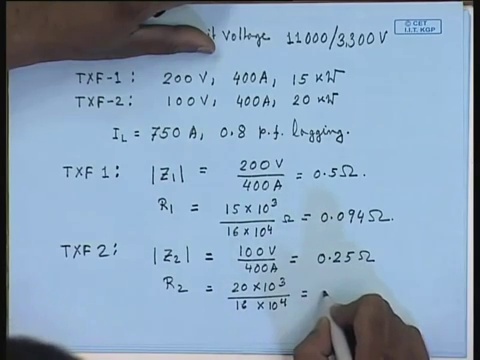 it Voltage 11000/3,300V
© CET
I.I.T. KGP
TXF-1: 200 V, 400A, 15 KW
TXF-2: 100 V, 400A, 20 KW
I_L = 750 A, 0.8 p.f. lagging.
TXF 1: |Z₁| = 200 V / 400 A = 0.5Ω.
R₁ = 15 × 10³ / 16 × 10⁴ Ω = 0.094Ω.
TXF 2: |Z₂| = 100V / 400A = 0.25 Ω
R₂ = 20 × 10³ / 16 × 10⁴ =